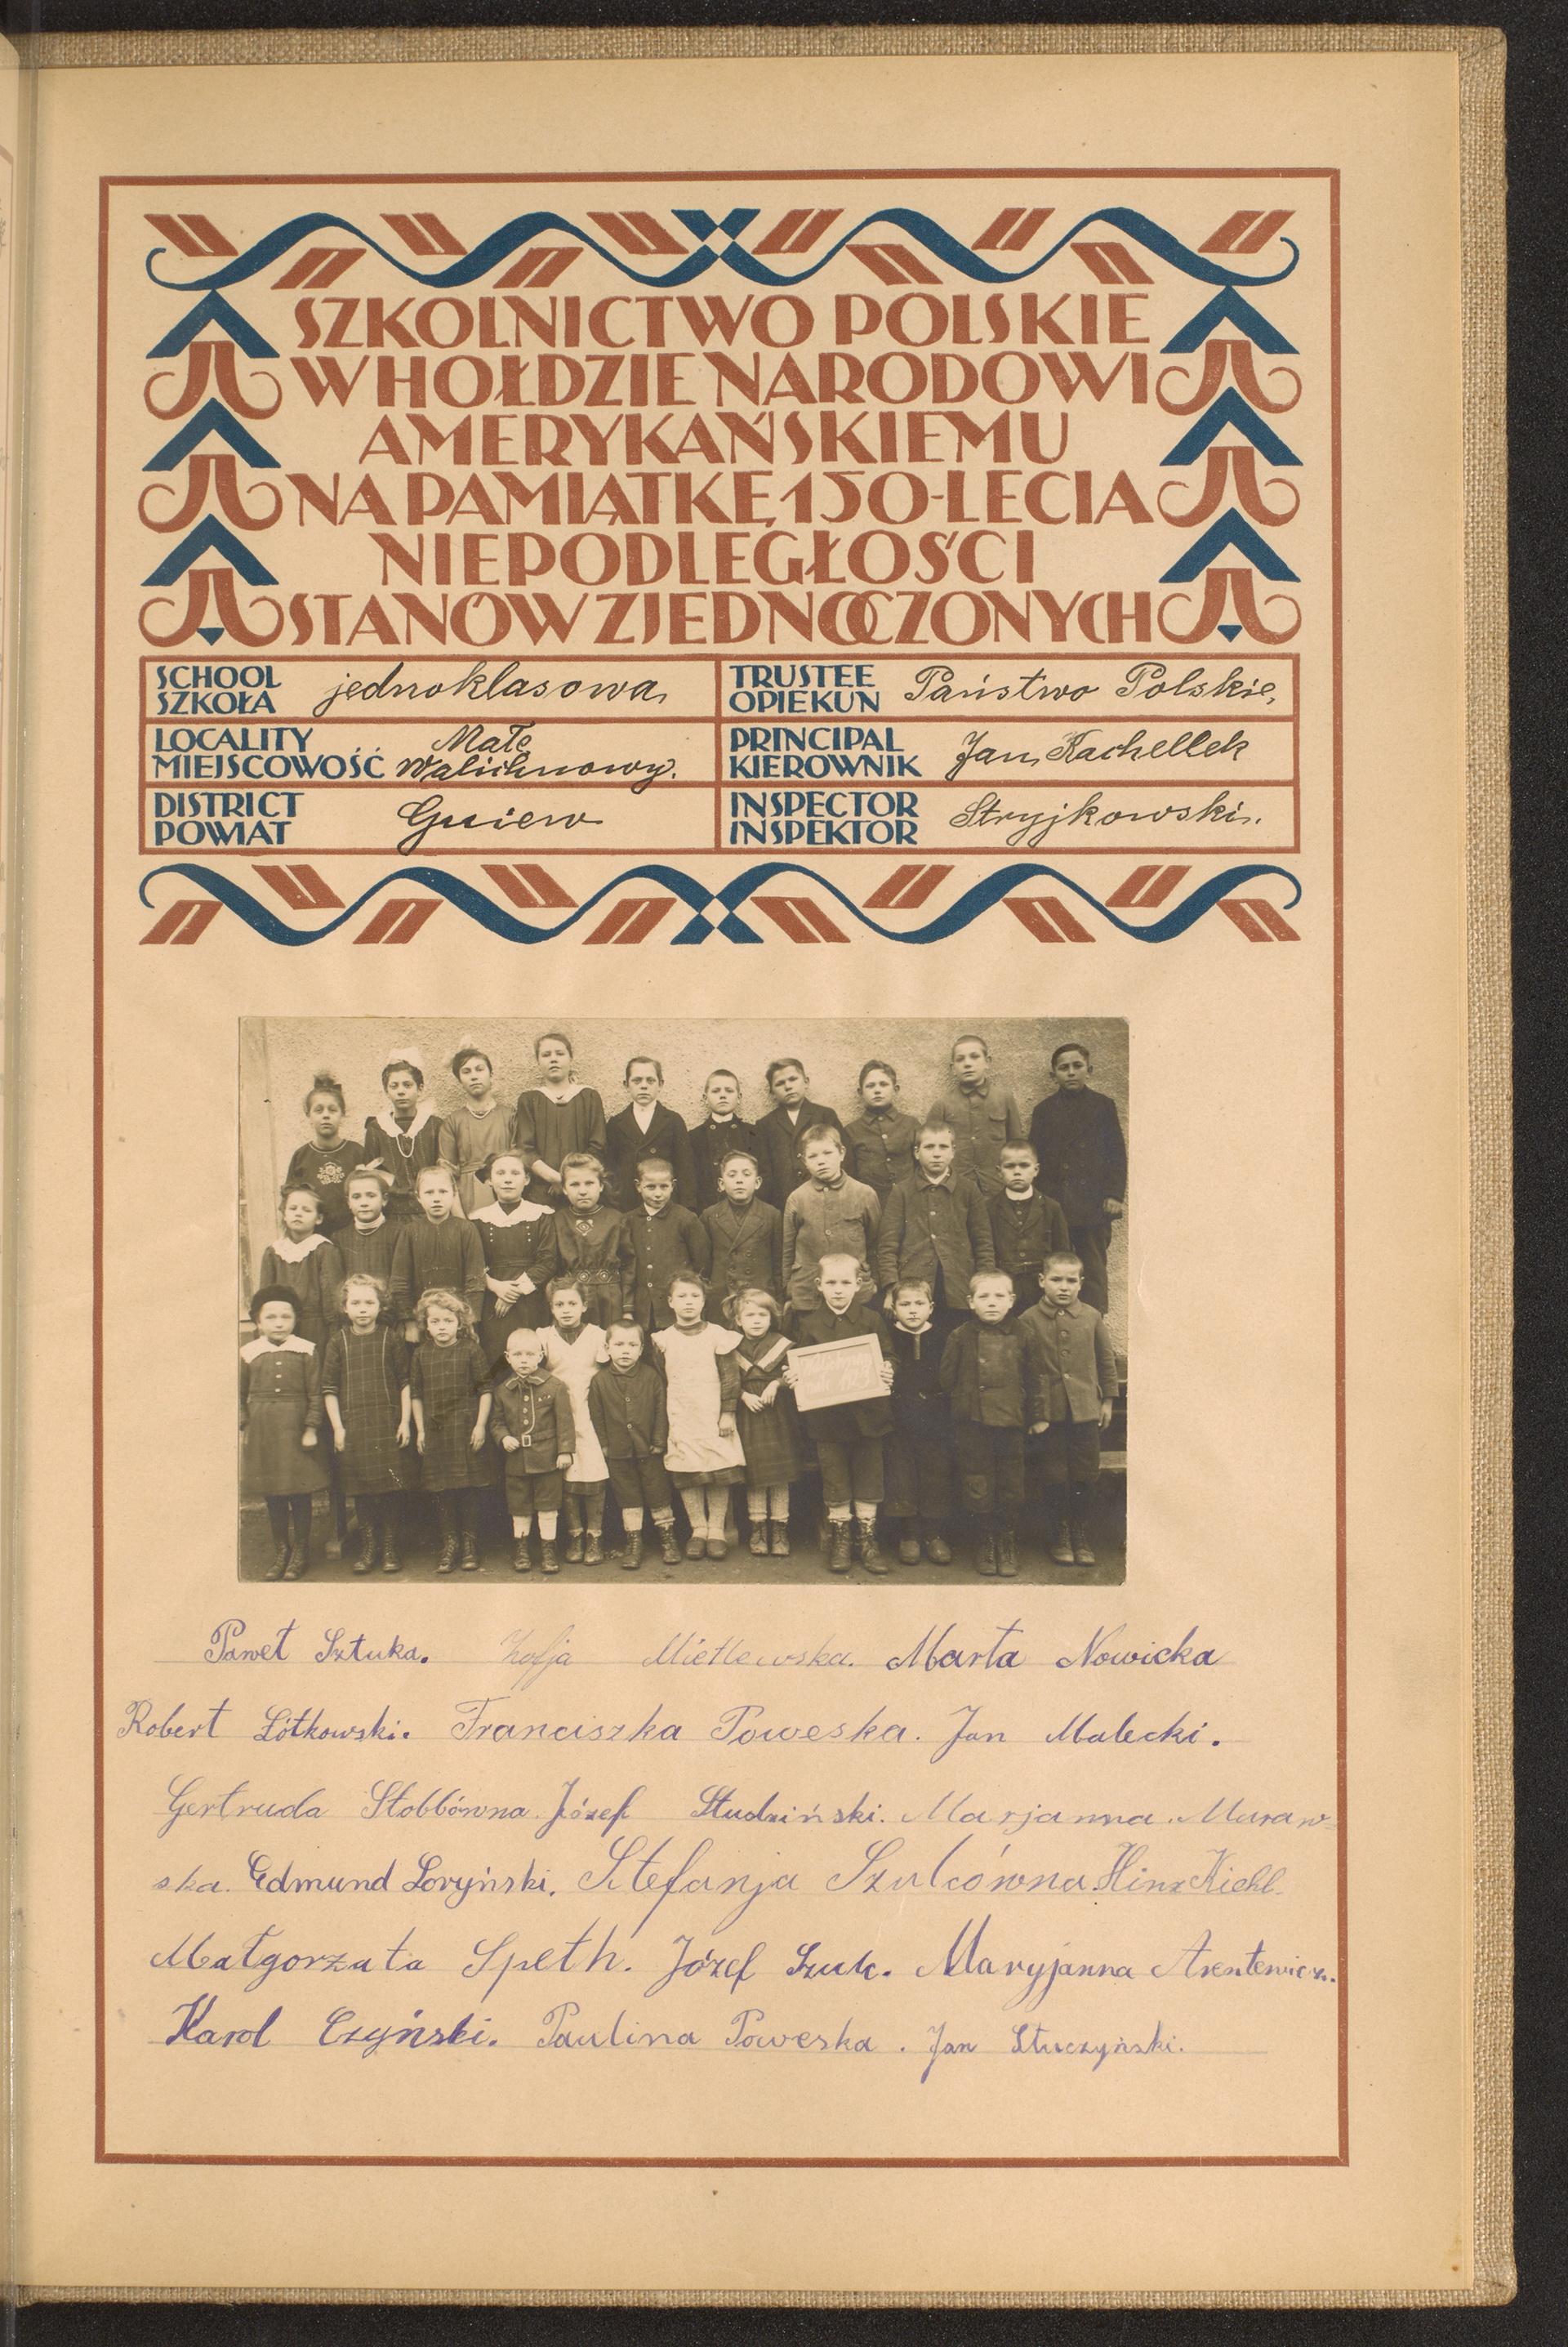 SZKOLNICTWO POLSKIE
W HOŁDZIE NARODOWI
AMERYKAŃSKIEMU
NA PAMIĄTKĘ 150-LECIA
NIEPODLEGŁOŚCI
STANÓW ZJEDNOCZONYCH
SCHOOL SZKOŁA jednoklasowa,
TRUSTEE OPIEKUN Państwo Polskie,
LOCALITY MIEJSCOWOŚĆ Małe Walichnowy.
PRINCIPAL KIEROWNIK Jan Kachellek
DISTRICT POWIAT Gniew
INSPECTOR INSPEKTOR Stryjkowski.
Paweł Sztuka. Zofja Mietlewska. Marta Nowicka
Robert Lótkowski. Franciszka Poweska. Jan Malecki.
Gertruda Stobbówna. Józef Studziński. Marjanna Muraw-
ska. Edmund Loryński. Stefanja Szulcówna. Hinz Kiehl.
Małgorzata Speth. Józef Szuk. Maryjanna
Karol Czyński. Paulina Poweska. Jan Stuczyński.